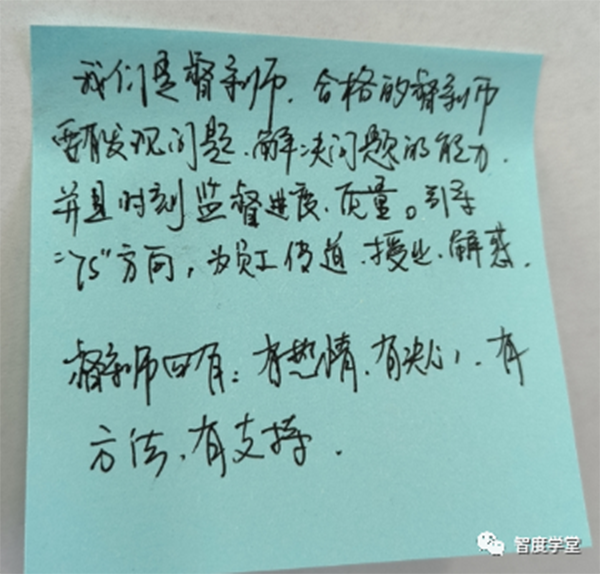 我们是督导师、合格的督导师
要有发现问题、解决问题的能力、
并且时刻监督进度、质量。引导
"TS"方向，为员工传道、授业、解惑.
督导师四有：有热情、有决心、有
方法、有支持.
智度学堂